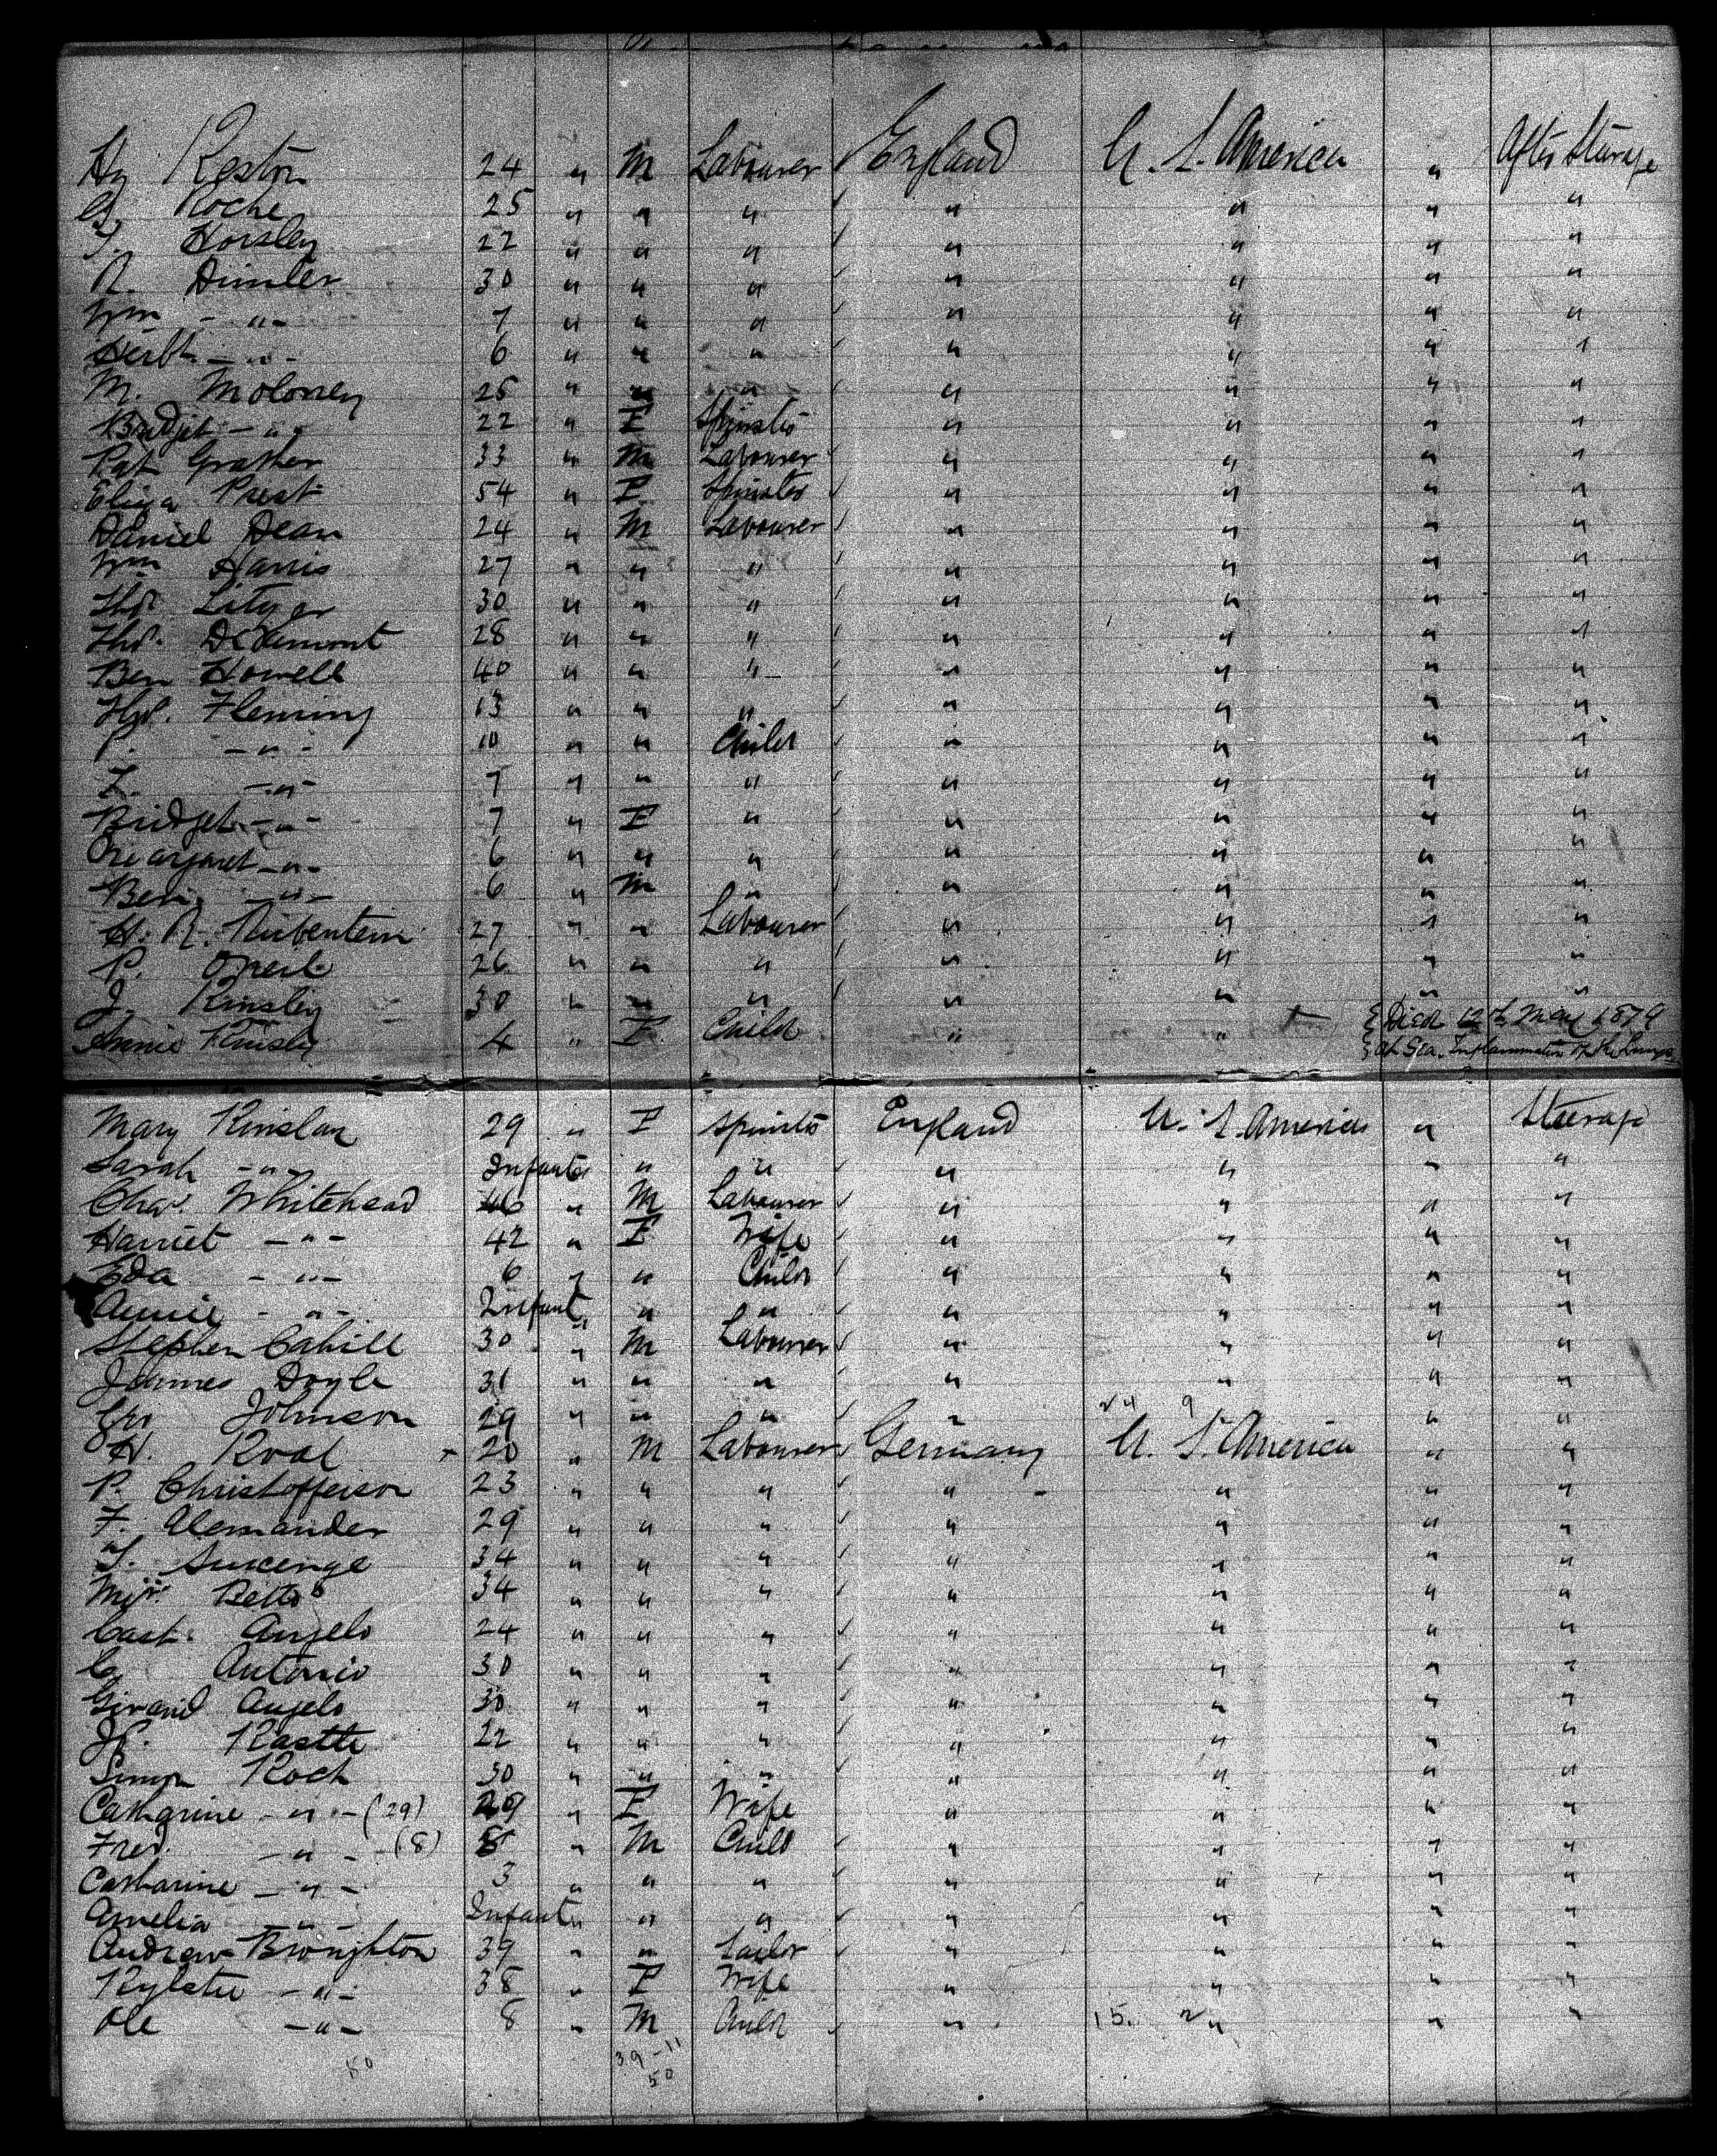 Hy Reston 24 " M Labourer England U. S. America " After Steerage
G. Roche 25 " " " " " " "
T. Horsley 22 " " " " " " "
R. Dimler 30 " " " " " " "
Wm - " - 7 " " " " " " "
Herbt - " - 6 " " " " " " "
M. Moloney 25 " " " " " " "
Bridjet - " - 22 " F Spinster " " " "
Pat 33 " M Labourer " " " "
Eliza Prest 54 " F Spinster " " " "
Daniel Dean 24 " M Labourer " " " "
Wm Harris 27 " " " " " " "
Thos. 30 " " " " " " "
Thos. 28 " " " " " " "
Ben Howell 40 " " " " " " "
Thos. Fleming 13 " " " " " " "
P. - " - 10 " " Child " " " "
- " - 7 " " " " " " "
Bridget - " - 7 " F " " " " "
Margaret - " - 6 " " " " " " "
Benj - " - 6 " M " " " " "
H. R. Rubentein 27 " " Labourer " " " "
P. Oneil 26 " " " " " " "
J. Kinsley 30 " " " " " " "
Annie Kinsley 4 " F Child " " { Died 12th May 1879
} At Sea. Inflammation of the Lungs
Mary Kinslan 29 " F Spinster England U. S. America " Steerage
Sarah - " - Infant " " " " " " "
Chas. Whitehead 46 " M Labourer " " " "
Harriet - " - 42 " F Wife " " " "
Eda - " - 6 " " Child " " " "
Annie - " - Infant " " " " " " "
Stephen Cahill 30 " M Labourer " " " "
James Doyle 31 " " " " " " "
Geo Johnson 29 " " " " 24 9 " "
H. Koal 20 " M Labourer Germany U. S. America " "
P. Christofferson 23 " " " " " " "
F. Alemander 29 " " " " " " "
34 " " " " " " "
Betto 34 " " " " " " "
Cast. Angelo 24 " " " " " " "
C. Antonio 30 " " " " " " "
Girand Angelo 30 " " " " " " "
Kastte 22 " " " " " " "
Simon Koch 30 " " " " " " "
Catharine - " - (29) 29 " F Wife " " " "
Fred. - " - (8) 8 " M Child " " " "
Catharine - " - 3 " " " " " " "
Amelia - " - Infant " " " " " " "
Andrew Broughton 39 " " Tailor " " " "
- " - 38 " F Wife " " " "
Ole - " - 8 " M Child " 15. " " "
50 39-11
50